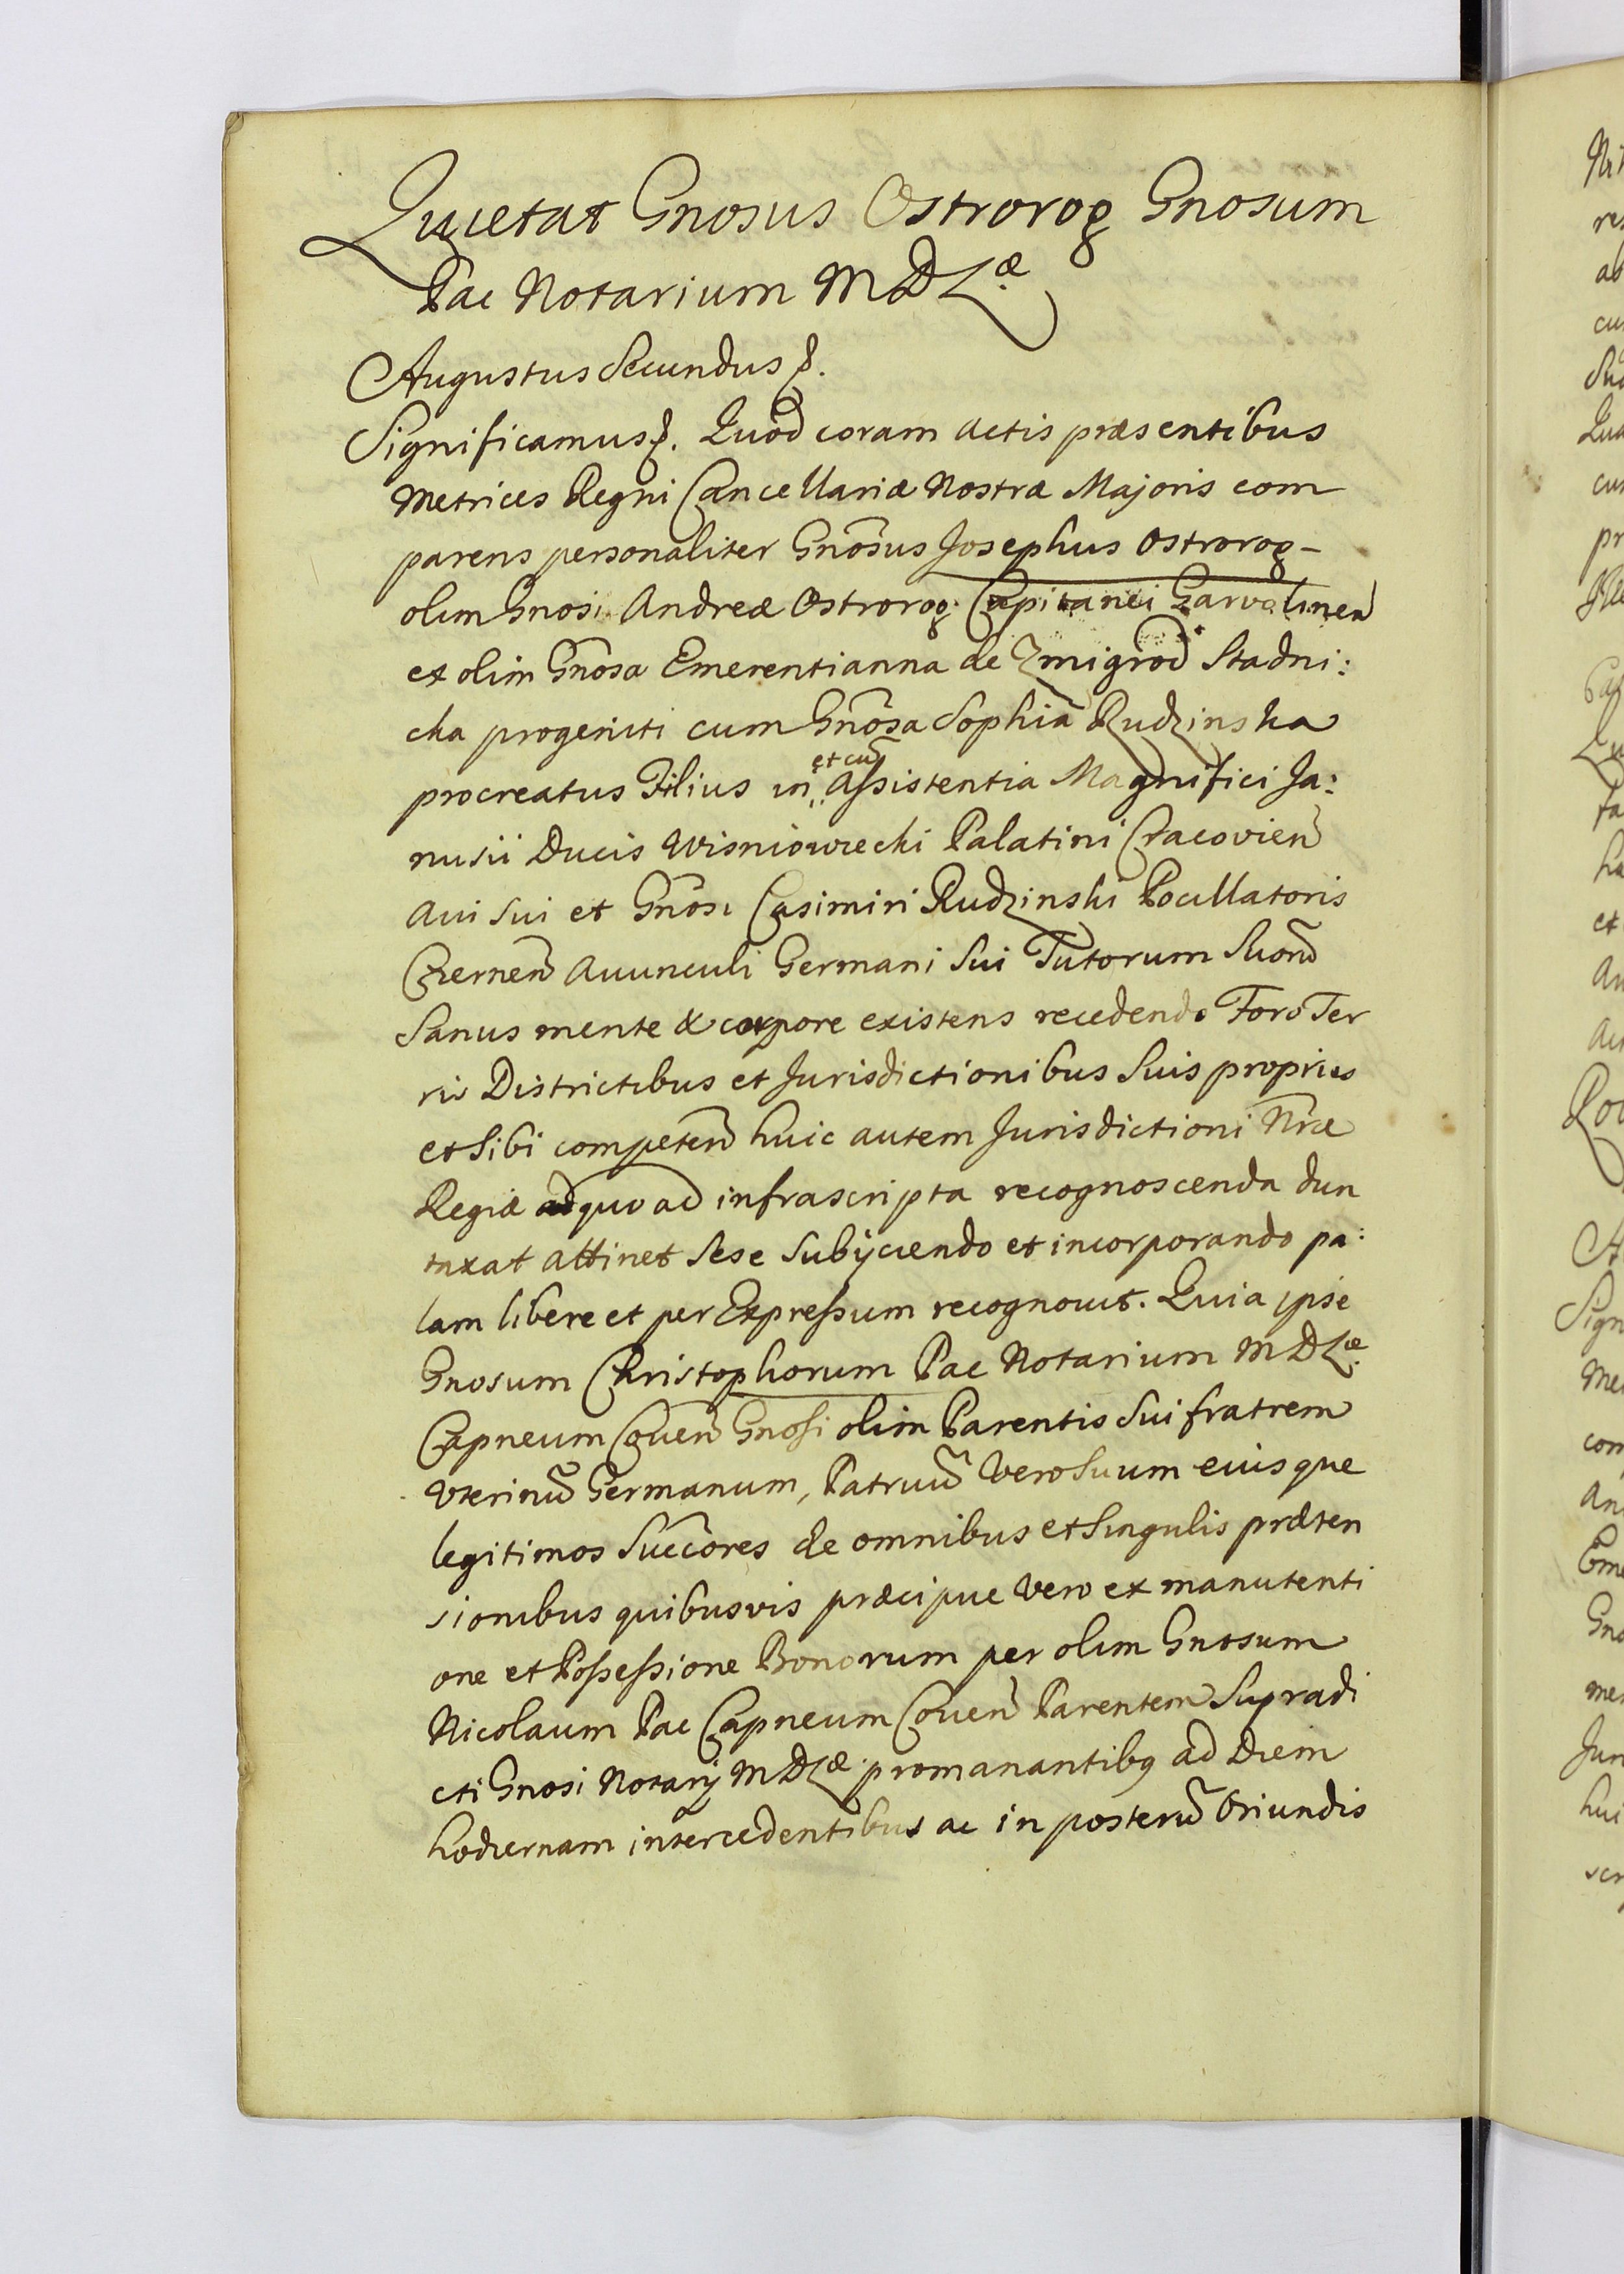 Quietat Gnosus Ostrorog Gnosum
Pac Notarium MDLæ
Augustus Secundus &.
Significamus &. Quod coram actis præsentibus
Metrices Regni Cancellariæ Nostræ Majoris com
parens personaliter Gnosus Josephus Ostrorog –
olim Gnosi Andreæ Ostrorog Capitanei Garvolinen
ex olim Gnosa Emerentianna de Zmigrod Stadni:
cka progeniti cum Gnosa Sophia Rudzinska
procreatus Filius in et cu Assistentia Magnifici Ja:
nusii Ducis Wisniowiecki Palatini Cracovien
Aui Sui et Gnosi Casimiri Rudzinski Pocillatoris
Czernen Auunculi Germani Sui Tutorum Suoru
Sanus mente & corpore existens recedendo Foro Ter
ris Districtibus et Jurisdictionibus Suis proprijs
et Sibi competen huic autem Jurisdictioni Nræ
Regiæ ad quo ad infrascripta recognoscenda dun
taxat attinet Sese Subijciendo et incorporando pa:
lam libere et per Expressum recognouit. Quia ipse
Gnosum Christophorum Pac Notarium MDLæ
Capneum Couen Gnosi olim Parentis Sui fratrem
Vterinu Germanum, Patruu Vero Suum eiusque
legitimos Succores de omnibus et Singulis præten
sionibus quibusvis præcipue Vero ex manutenti
one et Possessione Bonorum per olim Gnosum
Nicolaum Pac Capneum Couen Parentem Supradi
cti Gnosi Notarij MDLæ promanantibq ad Diem
hodiernam intercedentibus ac in posteru Oriundis